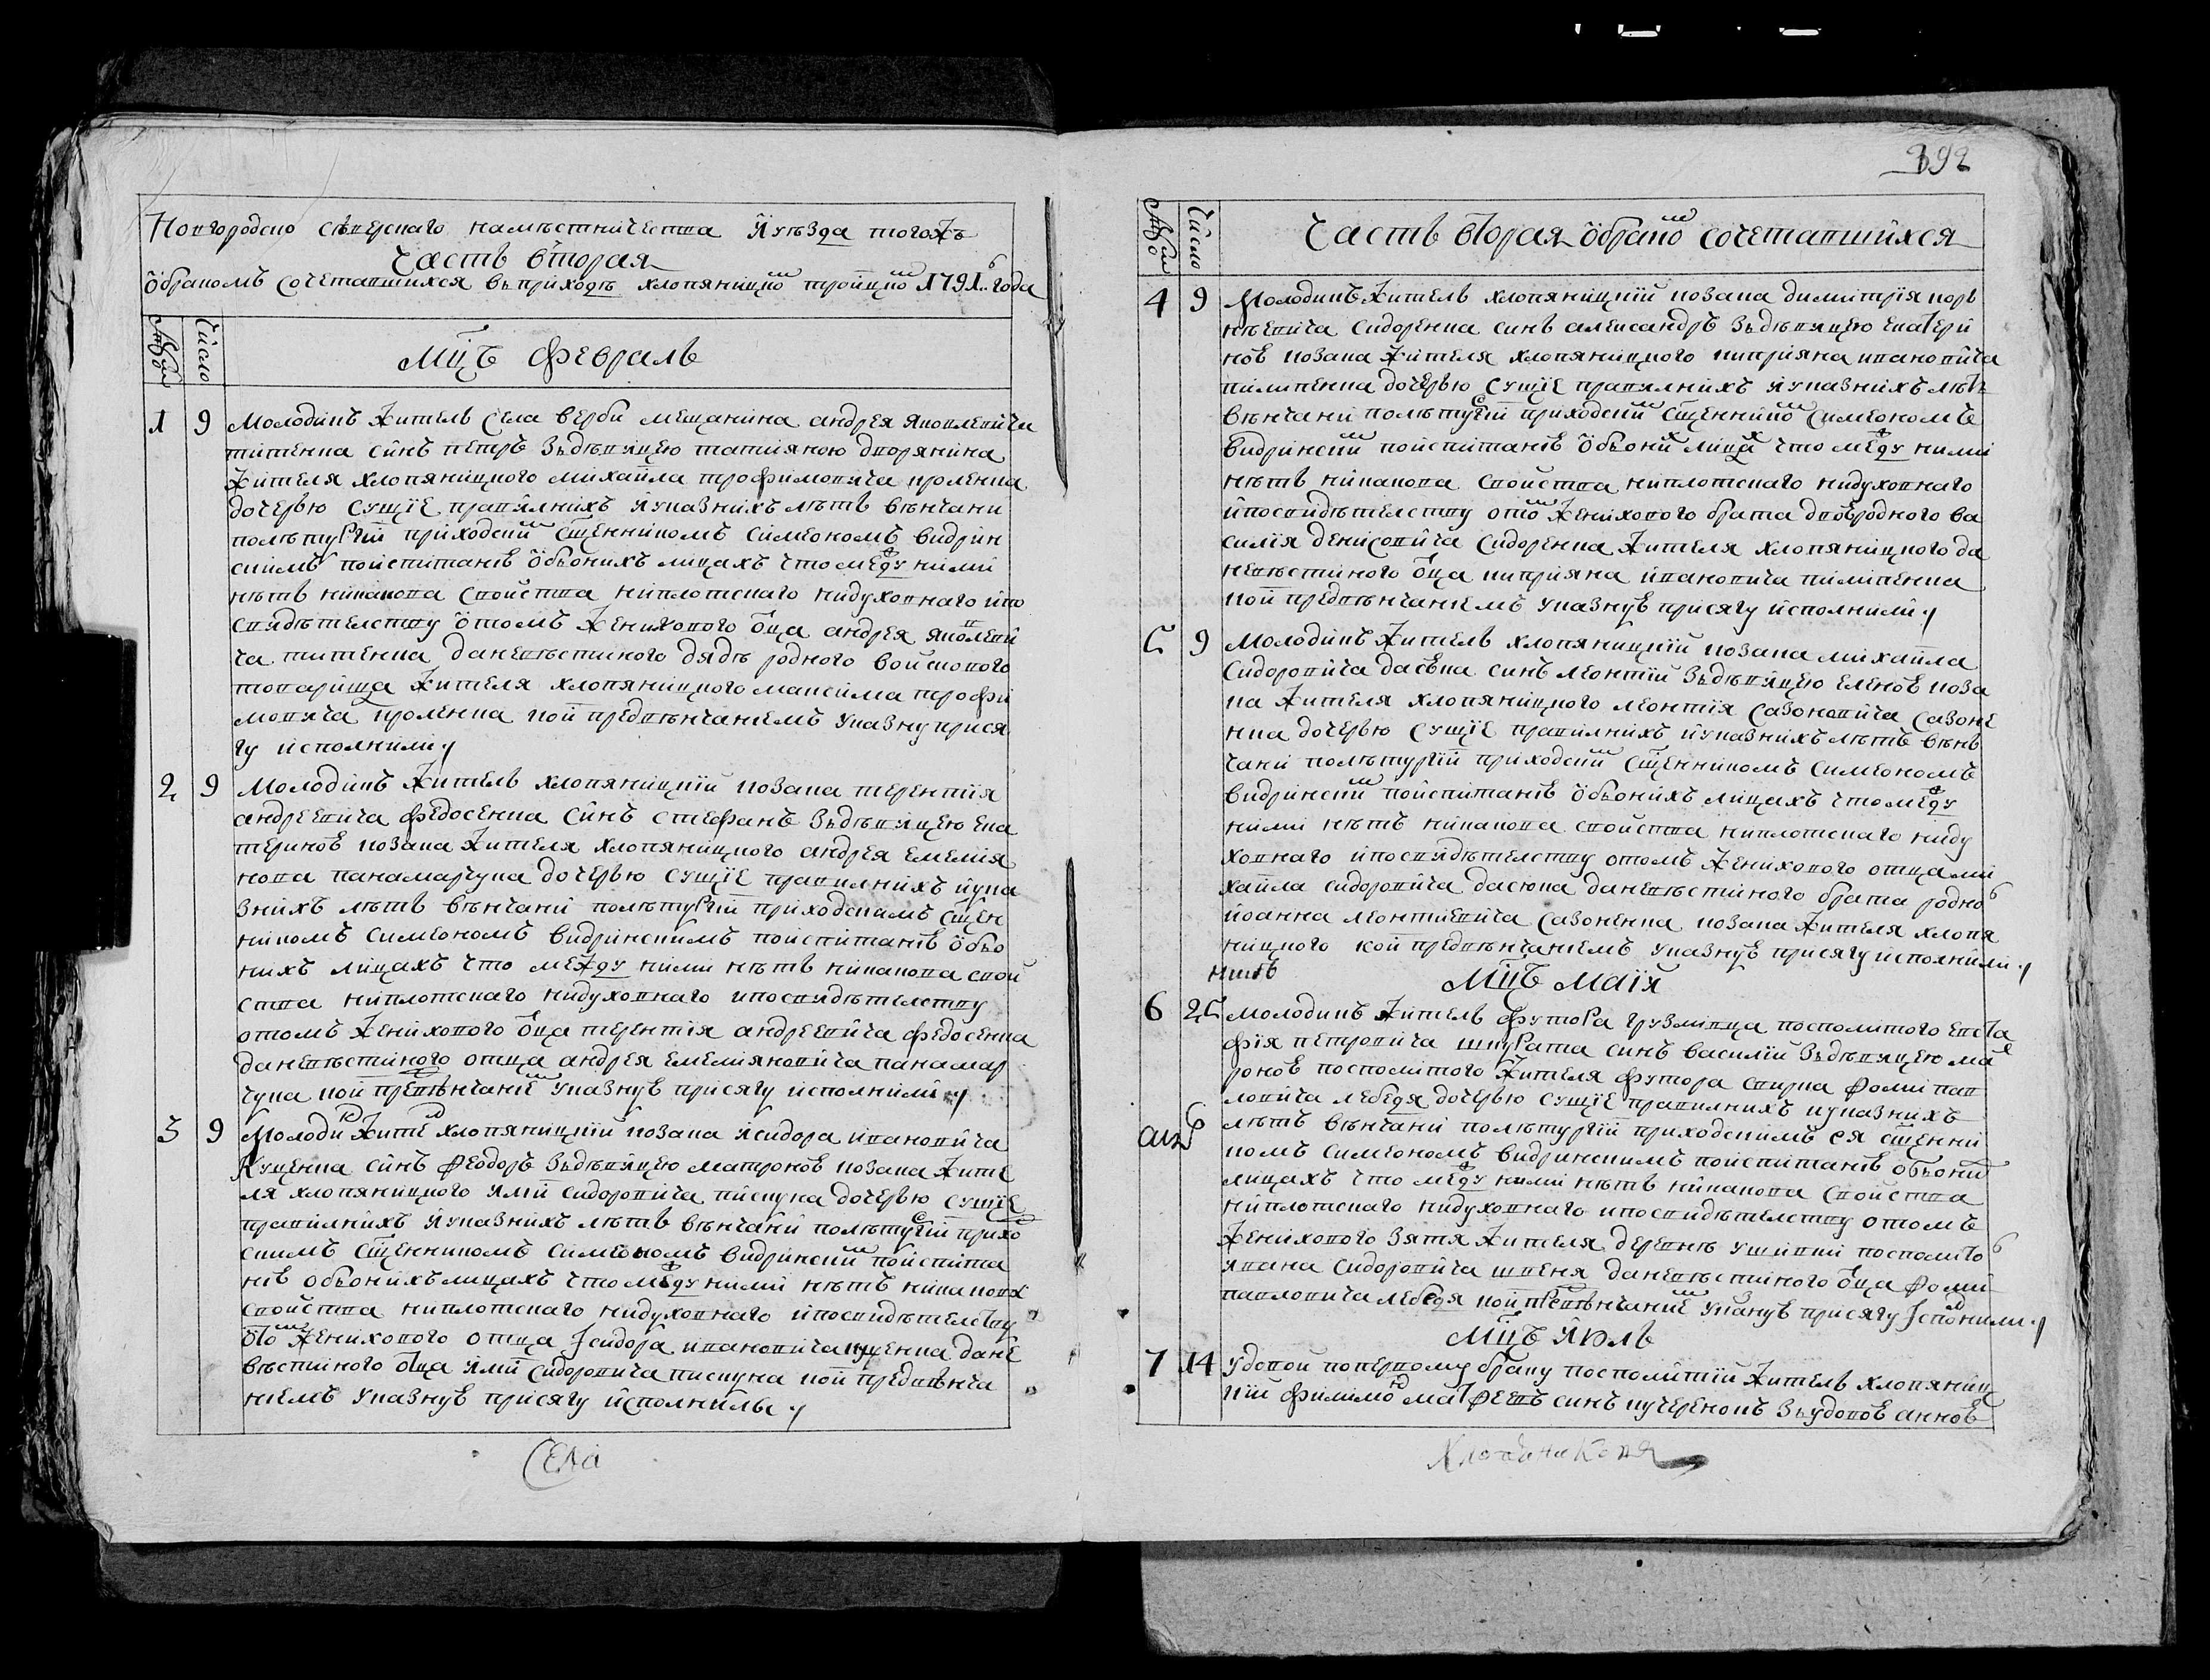 392
Новгородско сѣверскаго намѣстничества й уѣзда тогожъ
Часть вторая
о бракомъ сочетавшихся въ приходѣ хлопяницко троицко 1791.. года
число
мцъ февраль
1 9 Молодикъ житель села верби мещанина андрея яковлевича
титенка синъ петръ зъ дѣвицею татияною дворянина
жителя хлопяницкого михайла трофимовича кроленка
дочерью сущіе правилнихъ й указнихъ лѣтъ вѣнчани
по литургіи приходским сщенникомъ симеономъ видрин
скимъ по испитаніе о бъонихъ лицахъ что между ними
нѣтъ никакова свойства ни плотскаго ни духовнаго и по
свидѣтелству о томъ женихового оца андрея яковлеви
ча титенка да невѣстиного дядѣ родного войскового
товарища жителя хлопяницкого максима трофи
мовича кроленка кои предвѣнчаниемъ указну прися
гу исполнили
2 9 Молодикъ житель хлопяницкій козака терентія
андреевича федосенка синъ стефанъ зъ дѣвицею ека
териною козака жителя хлопяницкого андрея емелия
нова панамарчука дочерью сущіе правилнихъ й ука
знихъ лѣтъ вѣнчани по литургіи приходскимъ сщен
никомъ симеономъ видринскимъ по испитаніе о бъо
нихъ лицахъ что между ними нѣтъ никакова свой
ства ни плотскаго ни духовнаго и по свидѣтелству
о томъ женихового оца терентія андреевича федосенка
да невѣстиного отца андрея емелияновича панамар
чука кои превѣнчание указнуе присягу исполнили
3 9 Молодик жител хлопяницкій козака исидора ивановича
куценка синъ феодоръ зъ дѣвицею матроною козака жите
ля хлопяницкого сидоровича пискуна дочерью сущіе
правилнихъ й указнихъ лѣтъ вѣнчани по литургіи прихо
скимъ сщенникомъ симеономъ видриским по испита
ніе о бъонихъ лицахъ что между ними нѣтъ никакова
свойства ни плотскаго ни духовнаго и по свидѣтелству
о том женихового отца исидора ивановича куценка да не
вѣстиного оца сидоровича пискуна кои предвѣнча
ниемъ указнуе присягу исполнили
села
число
Часть вторая о брако сочетавшихся
4 9 Молодикъ житель хлопяницкій козака димитрія кор
нѣевича сидоренка синъ александръ зъ дѣвицею екатери
ною козака жителя хлопяницкого киприяна ивановича
пилипенка дочерью сущіе правилнихъ й указнихъ лѣтъ
вѣнчани по литургіи приходским сщеннико симеономъ
видринским по испитаніе о бъоних лицах что между ними
нѣтъ никакова свойства ни плотскаго ни духовнаго
и по свидѣтелству о том женихового брата двоюродного ва
силия денисовича сидоренка жителя хлопяницкого да
невѣстиного оца киприяна ивановича пилипенка
кои предвѣнчаниемъ указнуе присягу исполнили
5 9 Молодикъ житель хлопяницкій козака михайла
сидоровича дасюка синъ леонтій зъ дѣвицею еленое коза
ка жителя хлопяницкого леонтія сазоновича сазоне
нка дочерью сущіе правилнихъ й указнихъ лѣтъ вѣн
чани по литургіи приходским сщенникомъ симеономъ
видринским по испитаніе о бъонихъ лицахъ что между
ними нѣтъ никакова свойства ни плотскаго ни ду
ховнаго и по свидѣтелству о томъ женихового отца ми
хайла сидоровича дасюка да невѣстиного брата родно
иоанна леонтиевича сазоненка козака жителя хлопя
ницкого кои предвѣнчаниемъ указнуе присягу исполнили
Мцъ Маія
6 25 Молодикъ житель футора грузливца посполитого евста
фія петровича шкурата синъ василій зъ дѣвицею мат
роное посполитого жителя футора спирка фоми пав
ловича лебедя дочерью сущіе правилнихъ й указнихъ
лѣтъ вѣнчани по литургіи приходскимъ сщенни
комъ симеономъ видринскимъ по испитаніе о бъоних
лицахъ что между ними нѣтъ никакова свойства
ни плотскаго ни духовнаго и по свидѣтелству о томъ
женихового зятя жителя деревнѣ ушивки посполито
ивана сидоровича да невѣстиного оца фоми
павловича лебедя кои превѣнчание указнуе присягу исполнили
Мцъ Июль
7 14 удовой по первому браку посполитій житель хлопяниц
кій филимон матфеевъ синъ кучеренокъ зъ удовою анною